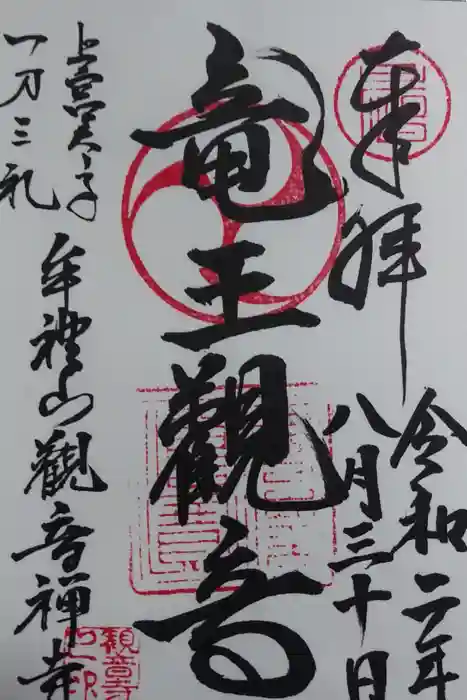 奉拝
令和二年
八月三十日
竜王觀音
上宮太子
一刀三礼
牟禮山觀音禅寺